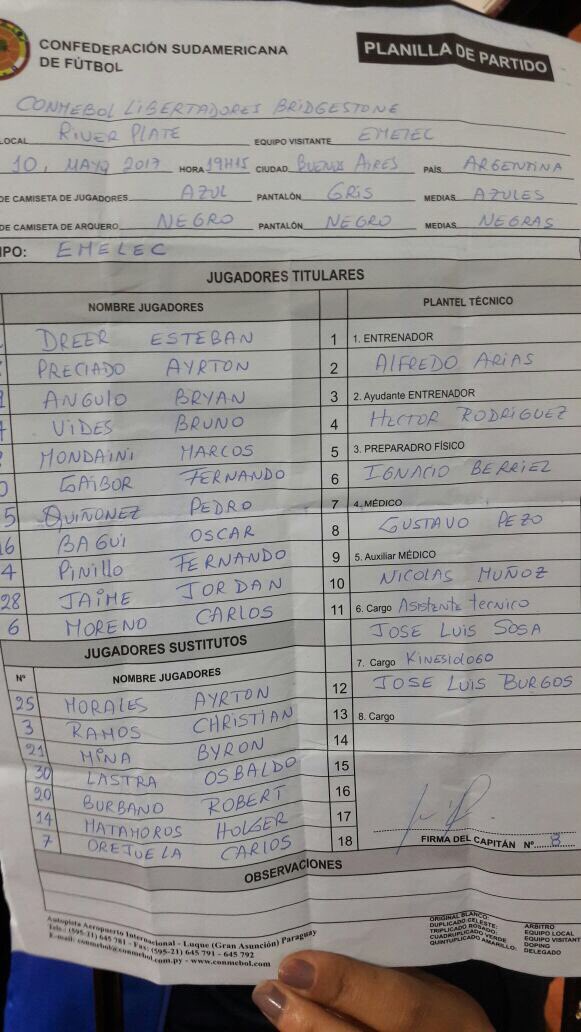 CONFEDERACIÓN SUDAMERICANA
DE FÚTBOL
PLANILLA DE PARTIDO
CONMEBOL LIBERTADORES BRIDGESTONE
LOCAL RIVER PLATE EQUIPO VISITANTE EMELEC
10, MAYO 2017 HORA 19H15 CIUDAD BUENOS AIRES PAÍS ARGENTINA
DE CAMISETA DE JUGADORES AZUL PANTALÓN GRIS MEDIAS AZULES
DE CAMISETA DE ARQUERO NEGRO PANTALÓN NEGRO MEDIAS NEGRAS
IPO: EMELEC
JUGADORES TITULARES
NOMBRE JUGADORES PLANTEL TÉCNICO
DREER ESTEBAN 1 1. ENTRENADOR
PRECIADO AYRTON 2 ALFREDO ARIAS
ANGULO BRYAN 3 2. Ayudante ENTRENADOR
VIDES BRUNO 4 HECTOR RODRIGUEZ
MONDAINI MARCOS 5 3. PREPARADRO FÍSICO
GAIBOR FERNANDO 6 IGNACIO BERRIEL
5 QUIÑONEZ PEDRO 7 4. MÉDICO
16 BAGUI OSCAR 8 GUSTAVO PEZO
4 PINILLO FERNANDO 9 5. Auxiliar MÉDICO
28 JAIME JORDAN 10 NICOLAS MUÑOZ
6 MORENO CARLOS 11 6. Cargo Asistente tecnico
JUGADORES SUSTITUTOS JOSE LUIS SOSA
Nº NOMBRE JUGADORES 7. Cargo KINESIOLOGO
25 MORALES AYRTON 12 JOSE LUIS BURGOS
3 RAMOS CHRISTIAN 13 8. Cargo
21 MINA BYRON 14
30 LASTRA OSBALDO 15
20 BURBANO ROBERT 16
14 MATAMOROS HOLGER 17
7 OREJUELA CARLOS 18 FIRMA DEL CAPITÁN Nº 8
OBSERVACIONES
Autopista Aeropuerto Internacional - Luque (Gran Asunción) Paraguay
Tels.: (595-21) 645 781 - Fax: (595-21) 645 791 - 645 792
E-mail: conmebol@conmebol.com.py - www.conmebol.com
ORIGINAL BLANCO: ARBITRO
DUPLICADO CELESTE: EQUIPO LOCAL
TRIPLICADO ROSADO: EQUIPO VISITANTE
CUADRUPLICADO VERDE DOPING
QUINTUPLICADO AMARILLO: DELEGADO